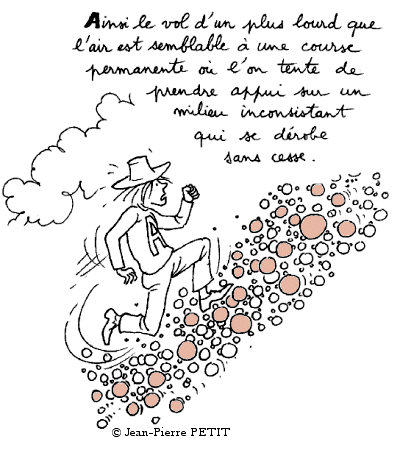 Ainsi le vol d'un plus lourd que
l'air est semblable à une course
permanente où l'on tente de
prendre appui sur un
milieu inconsistant
qui se dérobe
sans cesse.
A
© Jean-Pierre PETIT